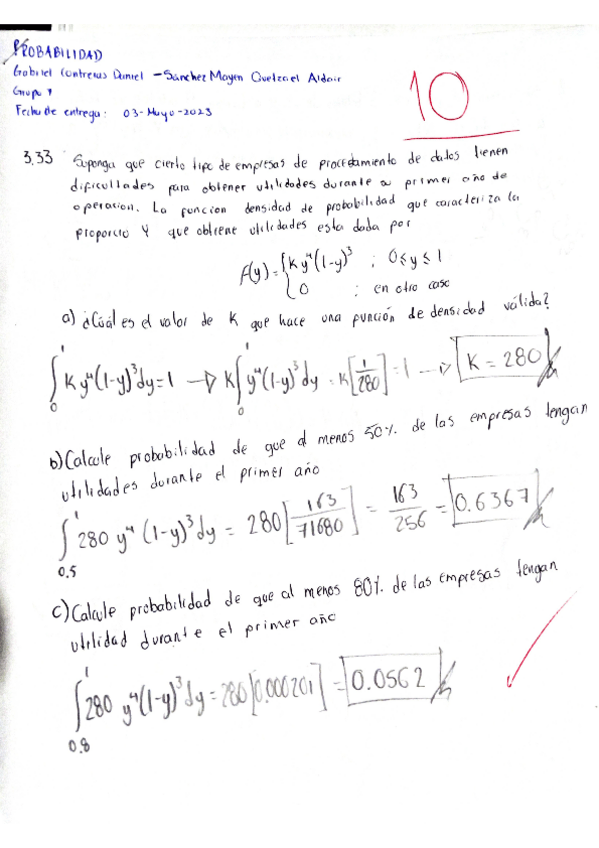 PROBABILIDAD
Gabriel Contreras Daniel - Sánchez Mayen Quetzael Aldair
Grupo 4
Fecha de entrega: 03-Mayo-2023
10
3.33 Suponga que cierto tipo de empresas de procedamiento de datos tienen
dificultades para obtener utilidades durante su primer año de
operacion. La funcion densidad de probabilidad que caracteriza la
proporcio Y que obtiene utilidades esta dada por
f(y) = { k y⁴(1-y)³ ; 0≤y≤1
0 ; en otro caso
a) ¿Cuál es el valor de K que hace una función de densidad válida?
∫₀¹ K y⁴(1-y)³dy = 1 → K∫₀¹ y⁴(1-y)³dy = K[1/280] = 1 → K = 280
b) Calcule probabilidad de que al menos 50% de las empresas tengan
utilidades durante el primer año
∫₀.₅¹ 280 y⁴ (1-y)³dy = 280[163/71680] = 163/256 = 0.6367
c) Calcule probabilidad de que al menos 80% de las empresas tengan
utilidad durante el primer año
∫₀.₈¹ 280 y⁴(1-y)³dy = 280[0.000201] = 0.0562